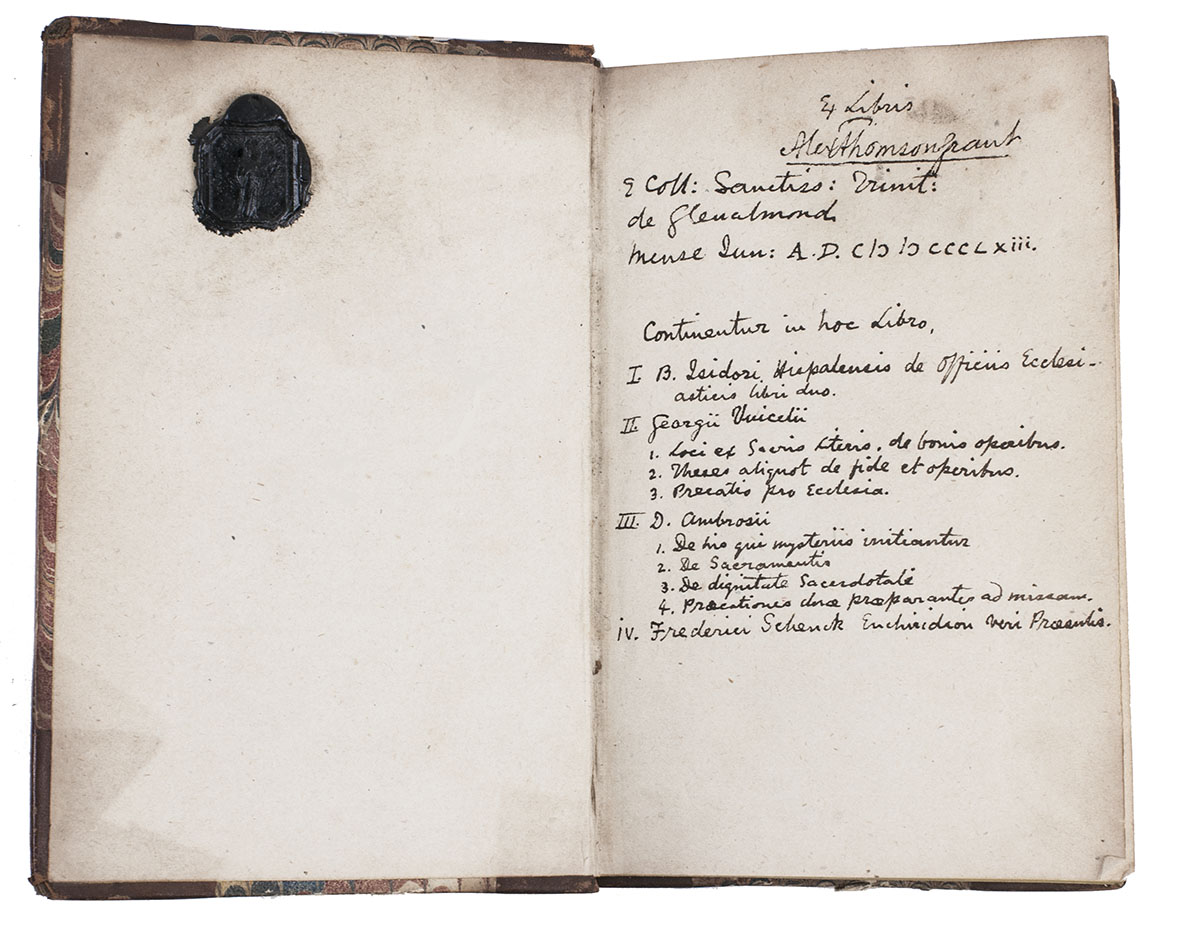 Ex Libris
Alex Thomson Grant
E Coll: Sanctiss: Trinit:
de Glenalmond
Mense Jun: A.D. CIↃ IↃCCCCLXiii.
Continentur in hoc Libro,
I. B. Isidori Hispalensis de Officiis Ecclesi-
asticis libri duo.
II. Georgii Vuicelii
1. Loci ex Sacris Literis, de bonis operibus.
2. Theses aliquot de fide et operibus.
3. Precatio pro Ecclesia.
III. D. Ambrosii
1. De his qui mysteriis initiantur
2. De Sacramentis
3. De dignitate Sacerdotale
4. Præcationes duæ præparantes ad missam.
iv. Frederici Schenck Enchiridion Veri Præsulis.